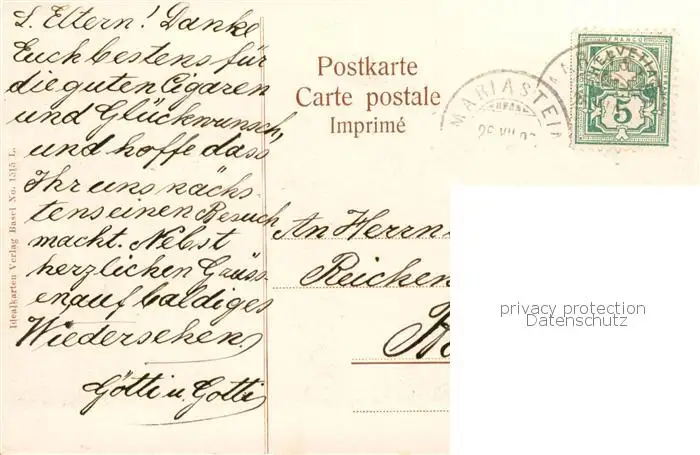 L. Eltern! Danke
Euch bestens für
die guten Cigaren
und Glückwunsch,
und hoffe dass
Ihr uns näch-
tens einen Besuch
macht. Nebst
herzlichen Grüss-
en auf baldiges
Wiedersehen.
Götti u. Gotti
Idealkarten Verlag Basel No. 1515 L.
Postkarte
Carte postale
Imprimé
MARIASTEIN
FRANCO
HELVETIA
5
An Herrn
Reichen
privacy protection
Datenschutz